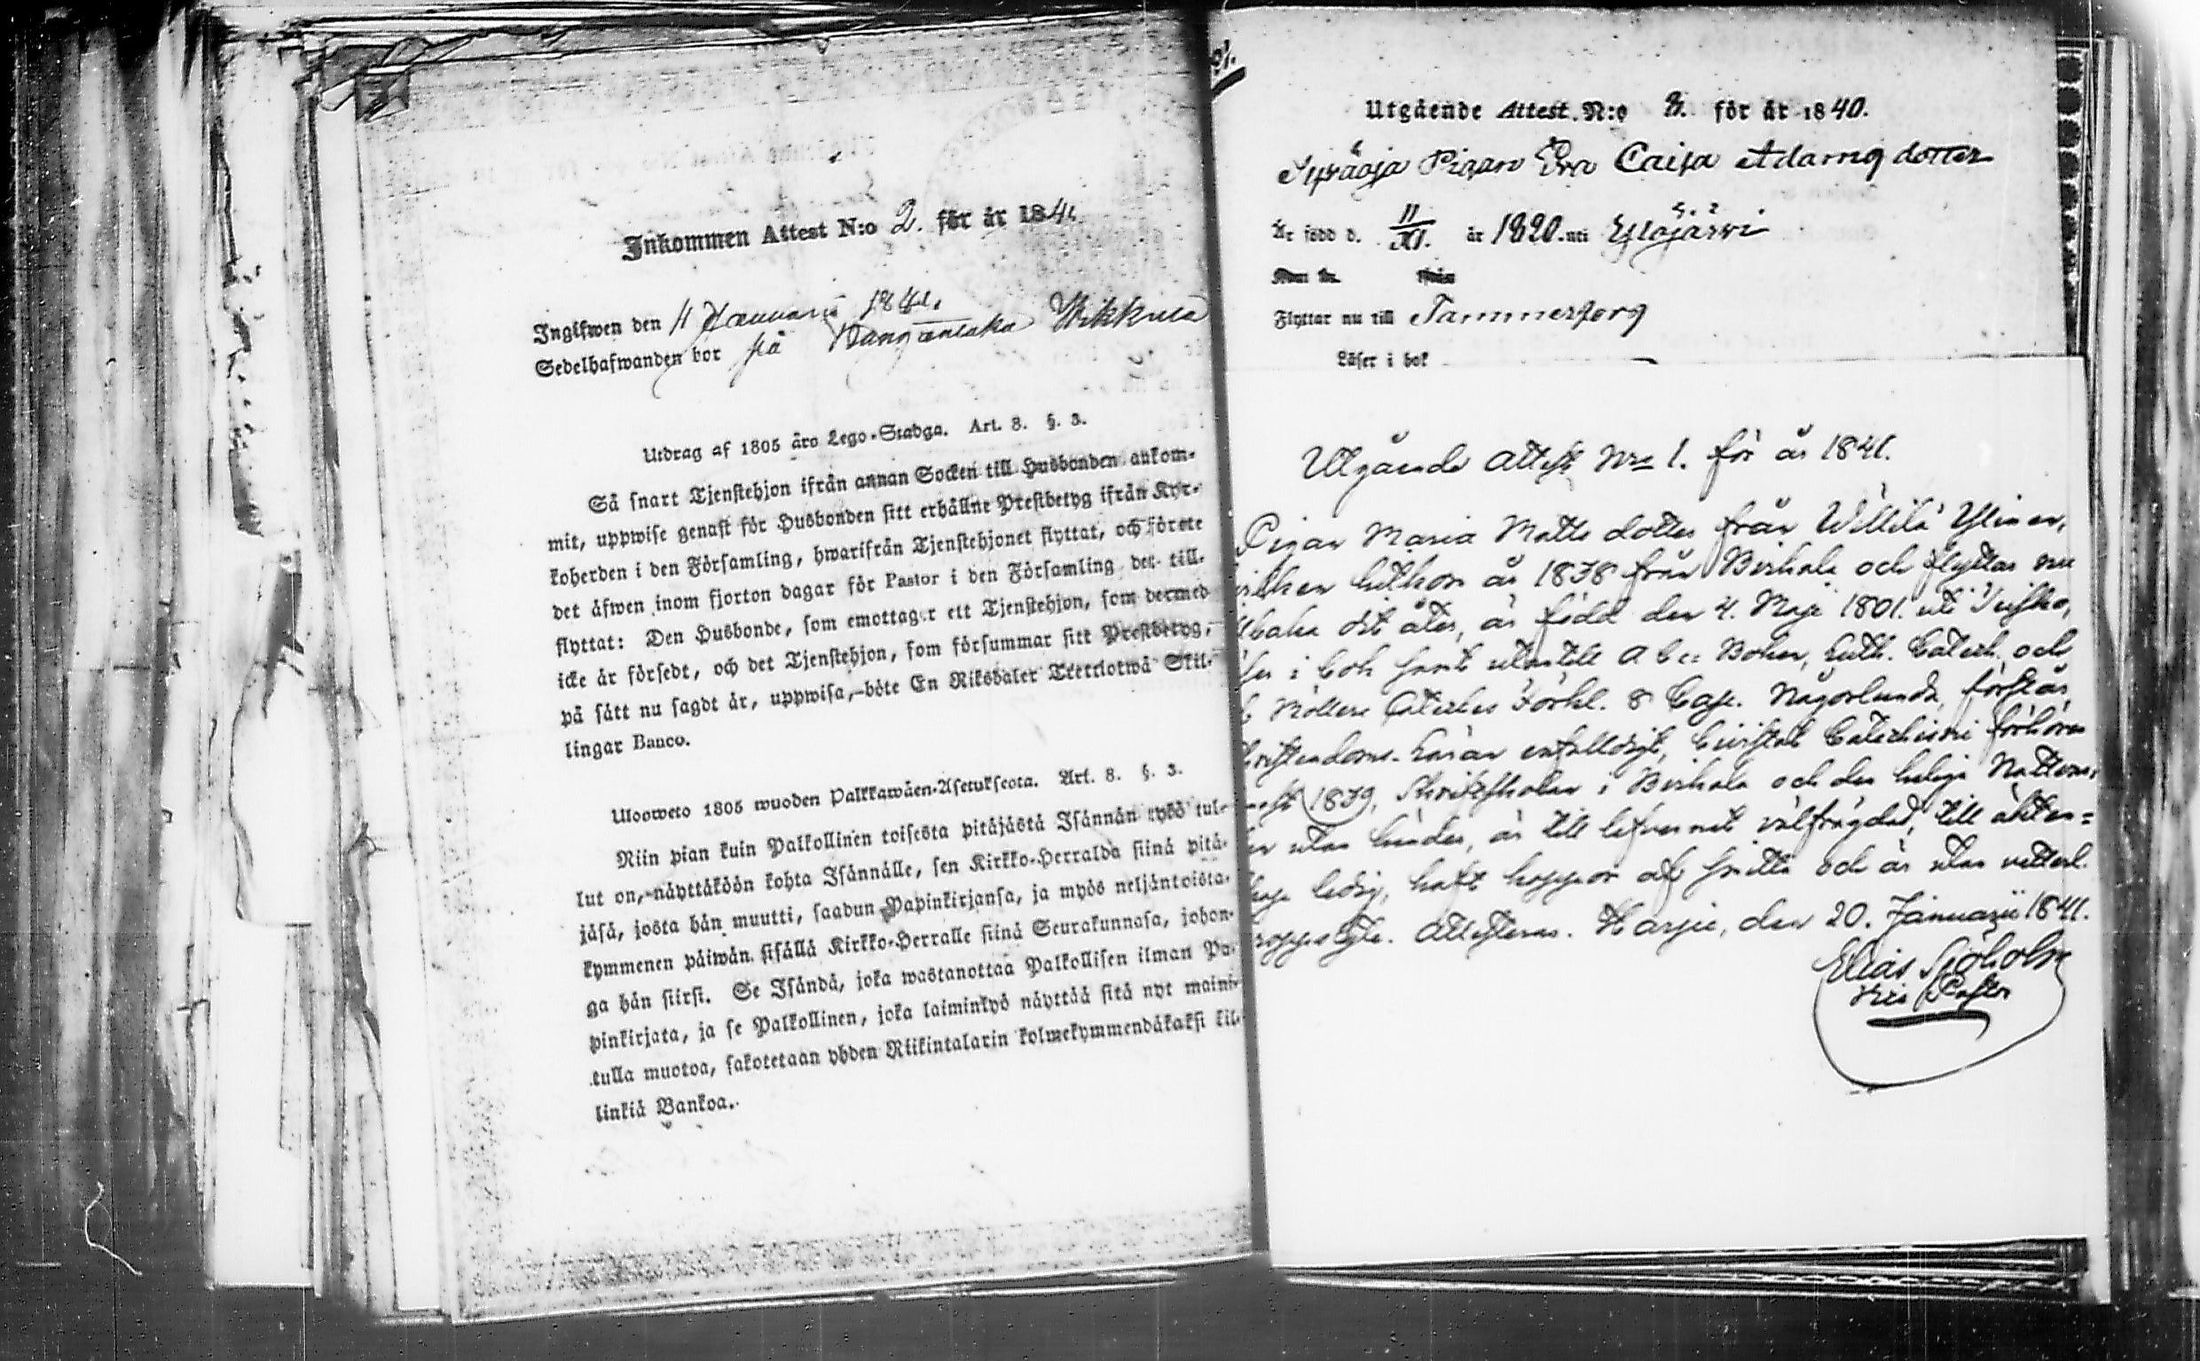 Inkommen Attest N:o 2. för år 1841
Ingifwen den 11 Januari 1841.
Sedelhafwanden bor på Kangasala Wikkula
Utdrag af 1805 års Lego-Stadga. Art. 8. §. 3.
Så snart Tjenstehjon ifrån annan Socken till Husbonden ankom-
mit, uppwise genast för Husbonden sitt erhållne Prestbetyg ifrån Kyr-
koherden i den Församling, hwarifrån Tjenstehjonet flyttat, och förete
det äfwen inom fjorton dagar för Pastor i den Församling det till-
flyttat: Den Husbonde, som emottager ett Tjenstehjon, som dermed
icke är försedt, och det Tjenstehjon, som försummar sitt Prestbetyg,
på sätt nu sagdt är, uppwisa, böte En Riksdaler Trettiotwå Skil-
lingar Banco.
Uloosweto 1805 wuoden Palkkawäen-Asetuksesta. Art. 8. §. 3.
Niin pian kuin Palkollinen toisesta pitäjästä Isännän tykö tul-
lut on, näyttäköön kohta Isännälle, sen Kirkko-Herralda siinä pitä-
jäsä, josta hän muutti, saadun Papinkirjansa, ja myös neljäntoista-
kymmenen päiwän sisällä Kirkko-Herralle siinä Seurakunnasa, johon-
ga hän siirsi. Se Isändä, joka wastanottaa Palkollisen ilman Pa-
pinkirjata, ja se Palkollinen, joka laiminlyö näyttää sitä nyt maini-
tulla muotoa, sakotetaan yhden Riikintalarin kolmekymmendäkaksi kil-
linkiä Bankoa.
21.
Utgående Attest. N:o 2. för år 1840.
Pigan Eva Caisa Adams dotter
Är född d. 11/XI. år 1820. uti Ylöjärvi
Flyttar nu till Tammerforg
Läser i bok
Utgående Attest Nro 1. för år 1841.
Pigan Maria Matts dotter från Willilä Ylinen,
hitkom år 1838 från Birkala och flyttar nu
tillbaka dit åter, är född den 4. Maji 1801. uti
i bok samt utantill A b c Boken, Luth. Catech. och
Någorlunda förstår
Christendoms-Läran enfalldigt, bevistat Catechismi förhören
1839, Skriftskolan i Birkala och den heliga Nattvar-
den utan hinder, är till lefvernet välfrägdad, till äkten-
skap ledig, haft koppor af smitta och är utan vetterl.
kroppslyte. Attesteras. Harju, den 20. Januarii 1841.
Elias Sjöholm
Pastor